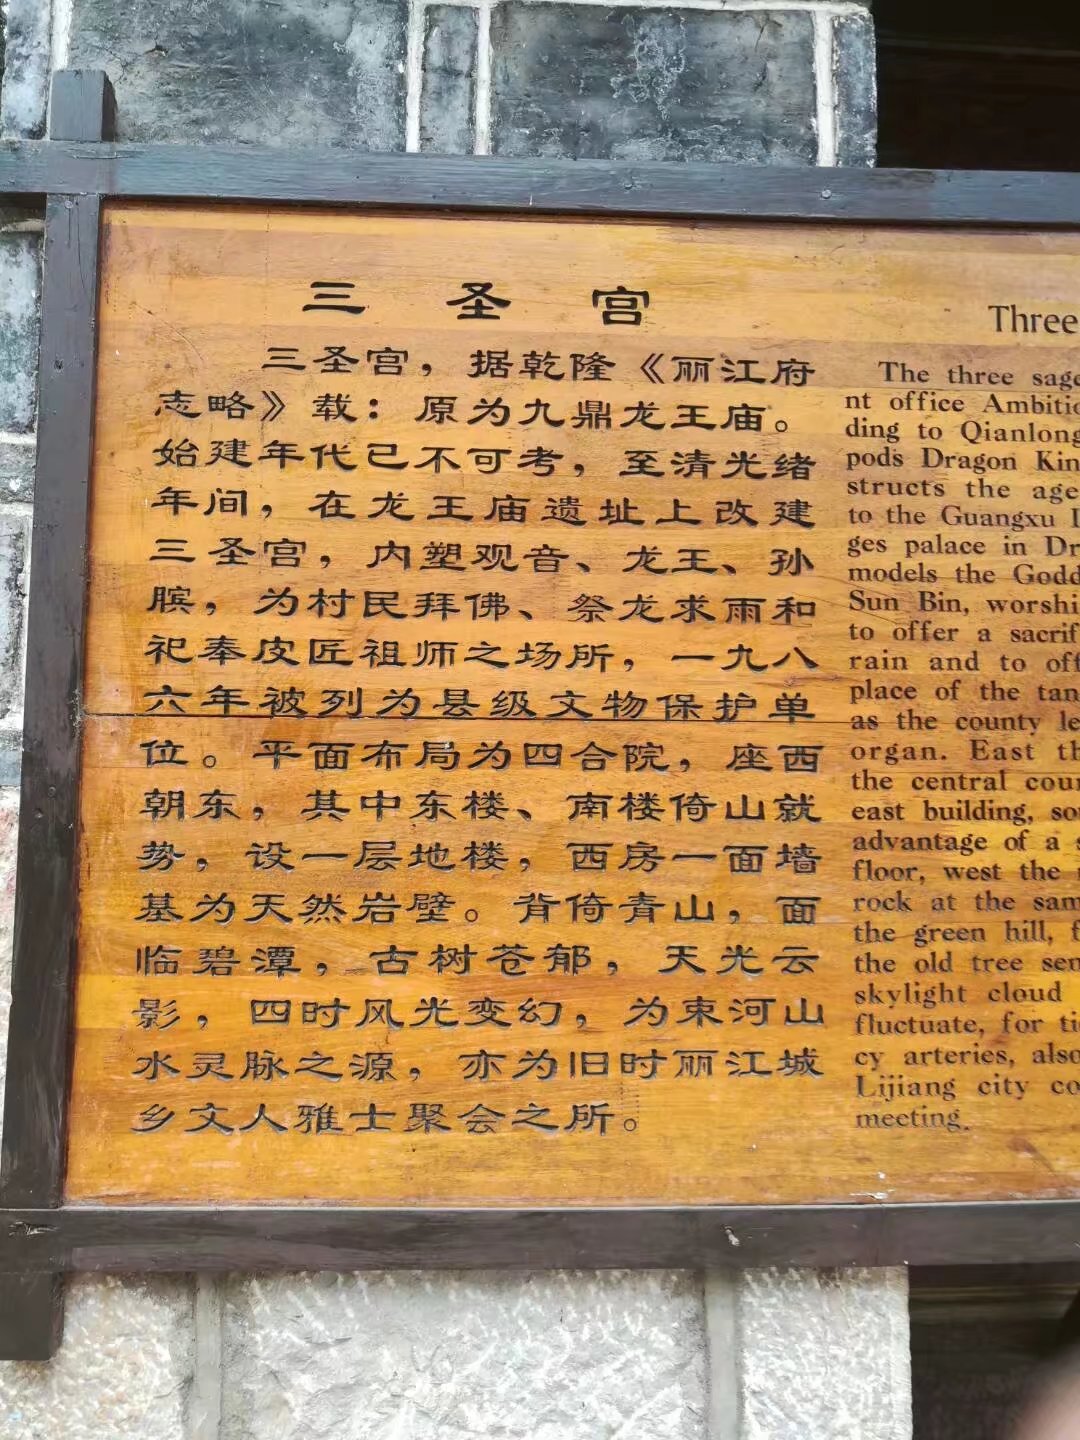 三圣宫
三圣宫，据乾隆《丽江府
志略》载：原为九鼎龙王庙。
始建年代已不可考，至清光绪
年间，在龙王庙遗址上改建
三圣宫，内塑观音、龙王、孙
膑，为村民拜佛、祭龙求雨和
祀奉皮匠祖师之场所，一九八
六年被列为县级文物保护单
位。平面布局为四合院，座西
朝东，其中东楼、南楼倚山就
势，设一层地楼，西房一面墙
基为天然岩壁。背倚青山，面
临碧潭，古树苍郁，天光云
影，四时风光变幻，为束河山
水灵脉之源，亦为旧时丽江城
乡文人雅士聚会之所。
Three
The three sage
nt office Ambitio
ding to Qianlong
pods Dragon Kin
structs the age
to the Guangxu
ges palace in Dr
models the Godd
Sun Bin, worshi
to offer a sacrif
rain and to off
place of the tan
as the county le
organ. East th
the central cour
east building, so
advantage of a s
floor, west the
rock at the sam
the green hill, f
the old tree sen
skylight cloud
fluctuate, for ti
cy arteries, also
Lijiang city co
meeting.